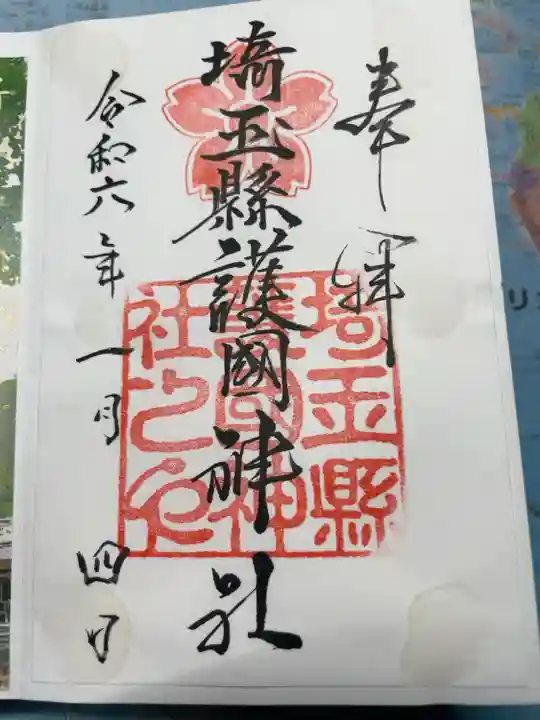 奉拝
埼玉縣護國神社
埼玉縣護國神社之印
令和六年一月四日
リオ